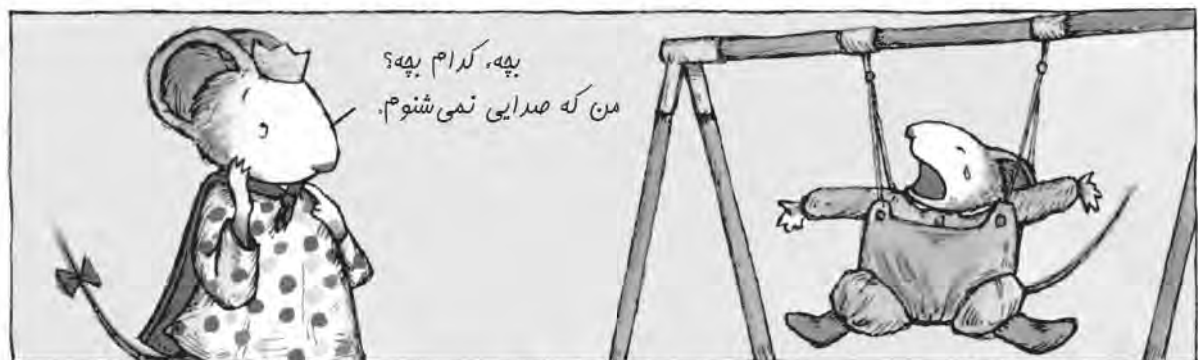 بچه، کدام بچه؟
من که صدایی نمی‌شنوم.